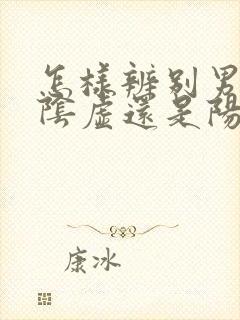 怎樣辨別男
陰虛還是陽
康冰